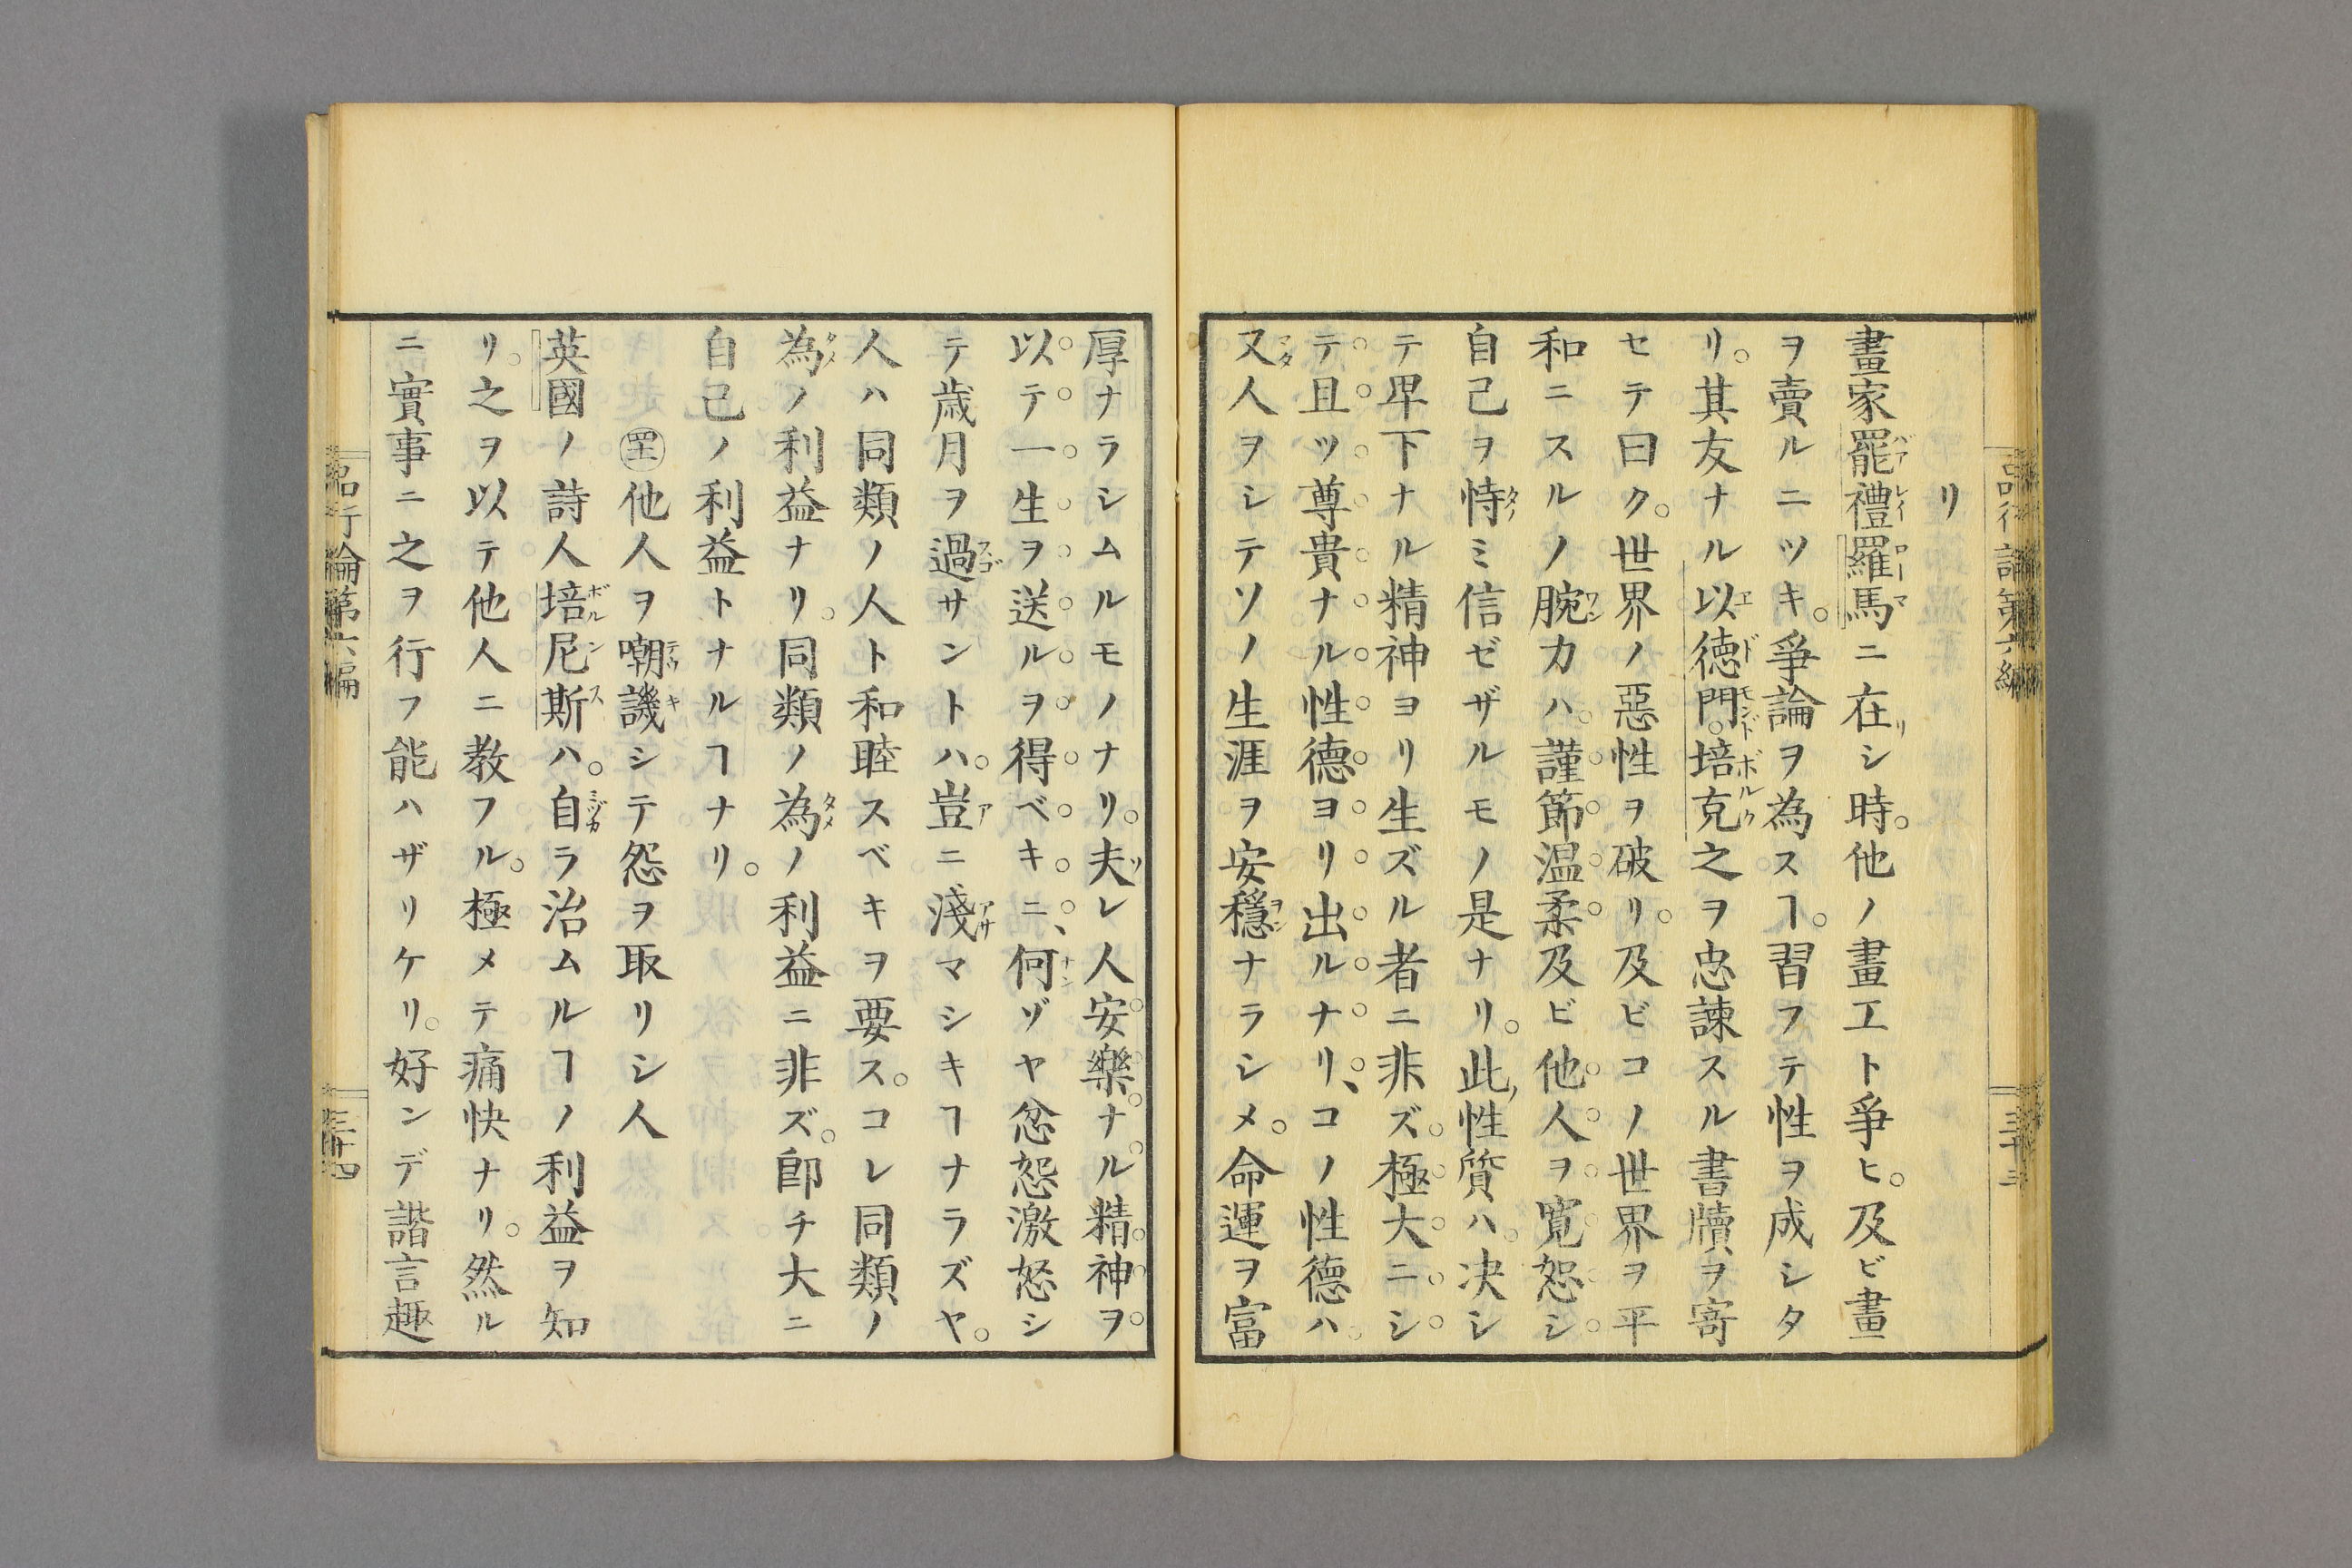 リ
畫家罷禮羅馬ニ在シ時。他ノ畫工ト爭ヒ。及ビ畫
ヲ賣ルニツキ。爭論ヲ為スヿ。習フテ性ヲ成シタ
リ。其友ナル以徳門。培克之ヲ忠諫スル書牘ヲ寄
セテ曰ク。世界ノ惡性ヲ破リ。及ビコノ世界ヲ平
和ニスルノ腕力ハ。謹節温柔及ビ他人ヲ寛恕シ
自己ヲ恃ミ信ゼザルモノ是ナリ。此性質ハ。决シ
テ卑下ナル精神ヨリ生ズル者ニ非ズ。極大ニシ
テ且ツ尊貴ナル性德ヨリ出ルナリ、コノ性德ハ。
又人ヲシテソノ生涯ヲ安穩ナラシメ。命運ヲ富
厚ナラシムルモノナリ。夫レ人安樂ナル精神ヲ
以テ一生ヲ送ルヲ得ベキニ、何ゾヤ忿怨激怒シ
テ歳月ヲ過サントハ。豈ニ淺マシキヿナラズヤ。
人ハ同類ノ人ト和睦スベキヲ要ス。コレ同類ノ
為ノ利益ナリ。同類ノ為ノ利益ニ非ズ。卽チ大ニ
自己ノ利益トナルヿナリ。
他人ヲ嘲譏シテ怨ヲ取リシ人
英國ノ詩人培尼斯ハ。自ラ治ムルヿノ利益ヲ知
リ。之ヲ以テ他人ニ教フル。極メテ痛快ナリ。然ル
ニ實事ニ之ヲ行フ能ハザリケリ。好ンデ諧言趣
品行論第六編
三十四